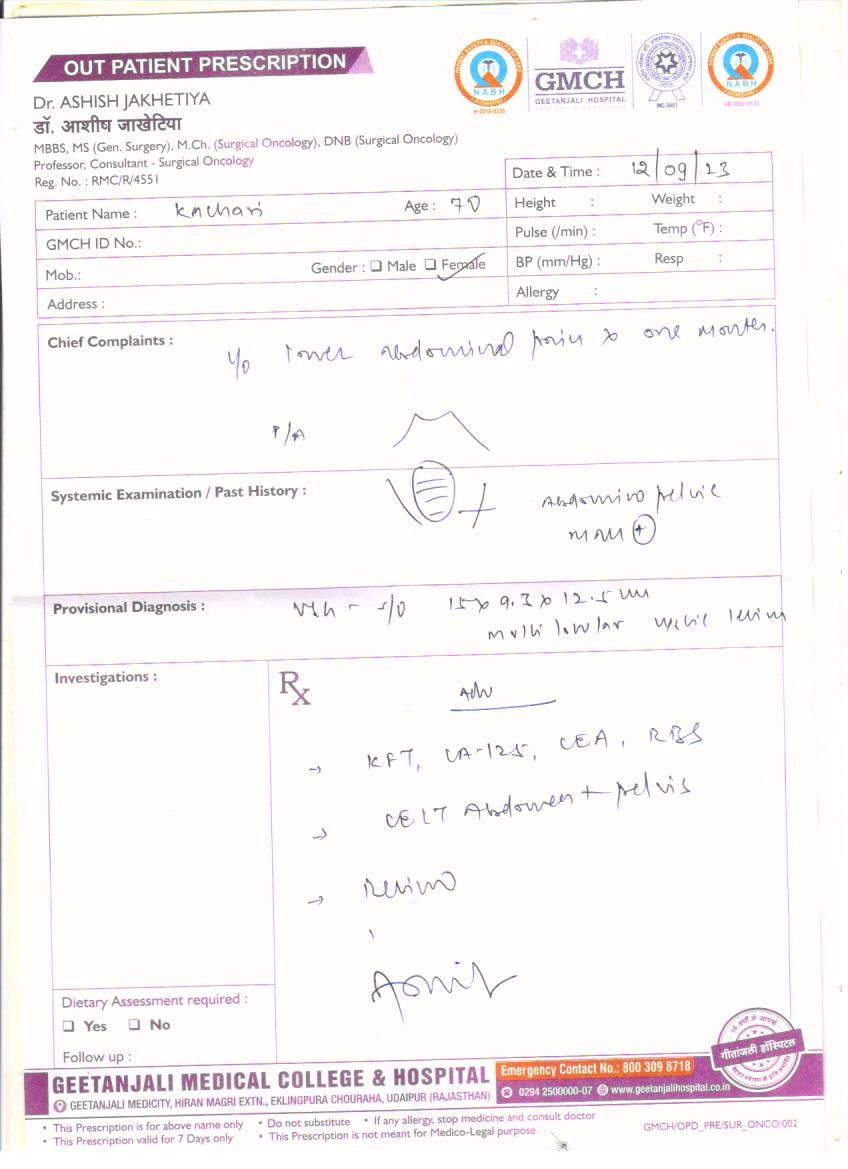 OUT PATIENT PRESCRIPTION
Dr. ASHISH JAKHETIYA
डॉ. आशीष जाखेटिया
MBBS, MS (Gen. Surgery), M.Ch. (Surgical Oncology), DNB (Surgical Oncology)
Professor, Consultant - Surgical Oncology
Reg. No. : RMC/R/4551
NABH
H-2018-0535
GMCH
GEETANJALI HOSPITAL
MC-3481
NABH
Date & Time : 12/09/23
Patient Name : Age : 70
Height : Weight :
GMCH ID No.:
Pulse (/min) : Temp (°F) :
Mob.: Gender : ☐ Male ☐ Female
BP (mm/Hg) : Resp :
Address :
Allergy :
Chief Complaints :
lower abdominal pain x one month.
P/A
Systemic Examination / Past History :
Abdomino pelvic
mass +
Provisional Diagnosis :
s/o 15 x 9.3 x 12.5 cm
multi locular cystic lesion
Investigations :
Rx
Adv
→ KFT, CA-125, CEA, RBS
→ CECT Abdomen + pelvis
→ Review
Dietary Assessment required :
☐ Yes ☐ No
Follow up :
गीतांजली हॉस्पिटल
GEETANJALI MEDICAL COLLEGE & HOSPITAL
Emergency Contact No.: 800 309 8718
GEETANJALI MEDICITY, HIRAN MAGRI EXTN., EKLINGPURA CHOURAHA, UDAIPUR (RAJASTHAN)
0294 2500000-07 www.geetanjalihospital.co.in
• This Prescription is for above name only • Do not substitute • If any allergy, stop medicine and consult doctor
• This Prescription valid for 7 Days only • This Prescription is not meant for Medico-Legal purpose
GMCH/OPD_PRE/SUR_ONCO/002